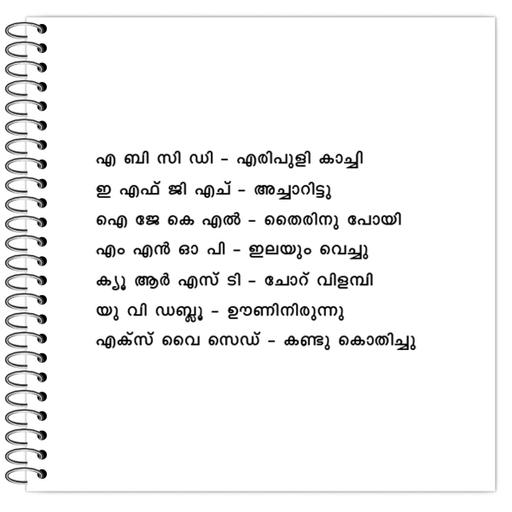 എ ബി സി ഡി - എരിപുളി കാച്ചി
ഇ എഫ് ജി എച് - അച്ചാറിട്ടു
ഐ ജേ കെ എൽ - തൈരിനു പോയി
എം എൻ ഓ പി - ഇലയും വെച്ചു
ക്യൂ ആർ എസ് ടി - ചോറ് വിളമ്പി
യു വി ഡബ്ലൂ - ഊണിനിരുന്നു
എക്സ് വൈ സെഡ് - കണ്ടു കൊതിച്ചു